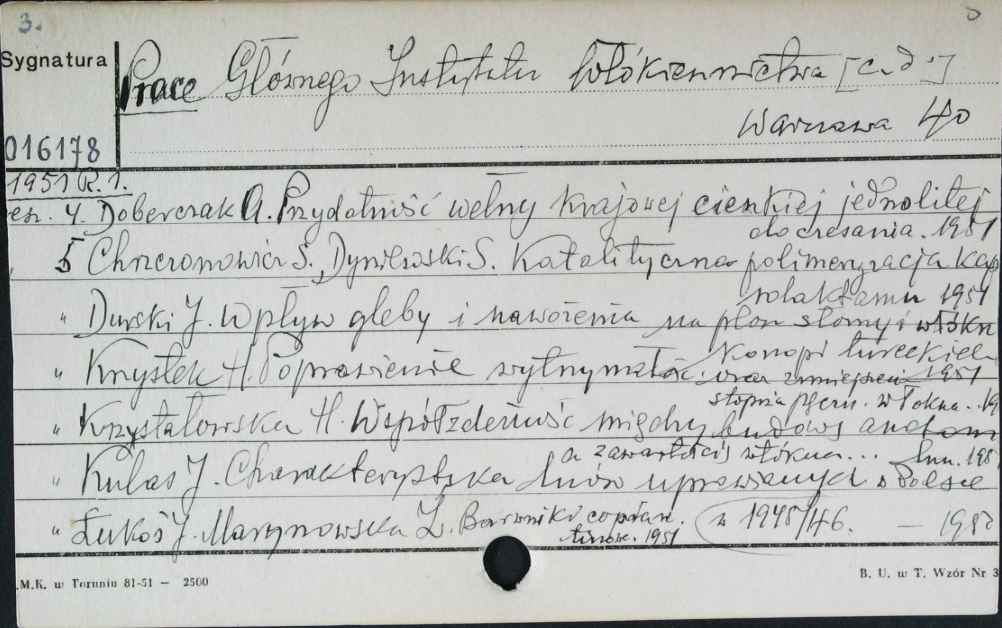 3.
Sygnatura
Prace Głównego Instytutu Włókiennictwa [c.d.]
Warszawa 40
016178
1951 R. 1.
zesz. 4. Doberczak A. Przydatność wełny krajowej cienkiej jednolitej
do czesania. 1951
5 Chrzczonowicz S., Dynilewski S. Katalityczna polimeryzacja kap
rolaktamu 1951
" Durski J. Wpływ gleby i nawożenia na plon słomy i włókn
konopi tureckich
" Krysłek H. Poprawienie wytrzymałoś. oraz zmniejszeni 1951
stopnia pęczn. włókna.
" Kryształowska H. Współzależność między budową anatom
a zawartością włókna... lnu. 195
" Kulas J. Charakterystyka lnów uprawianych w Polsce
" Łukoś J. Martynowska Z. Barwniki
w 1945/46. — 195
1951
.M.K. w Toruniu 81-51 — 2500
B. U. w T. Wzór Nr 3